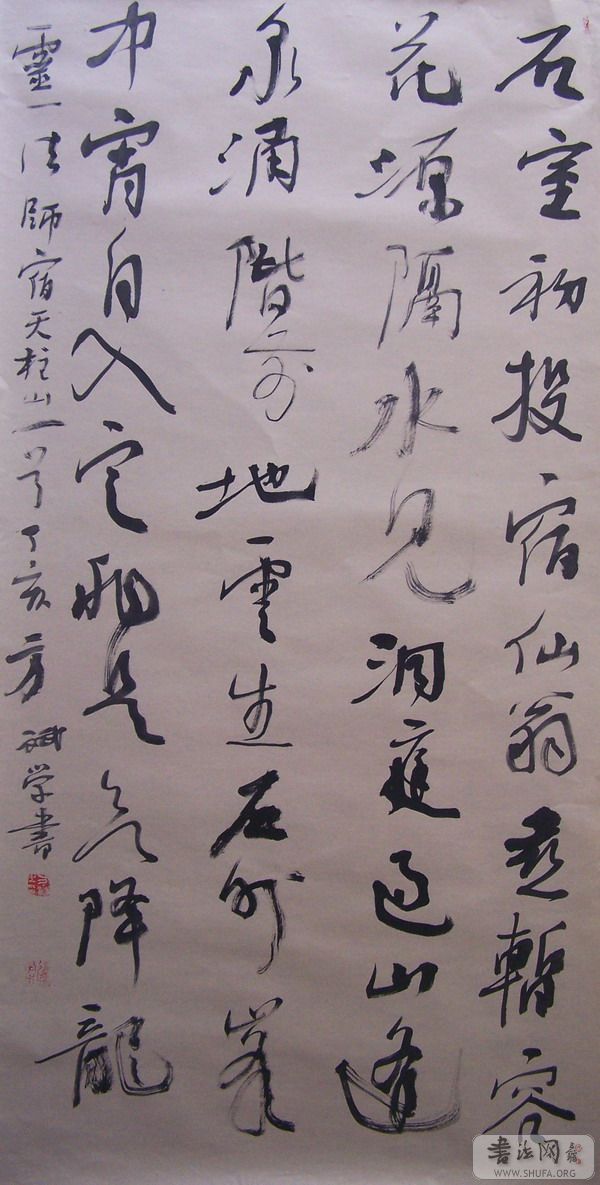 石室初投宿仙翁暫容
花源隔水見洞庭過山逢
泉涌階前地雲生石外峯
中宵自入定非是欲降龍
靈一法師宿天柱山一首丁亥方斌学書
书法网
WWW.SHUFA.ORG